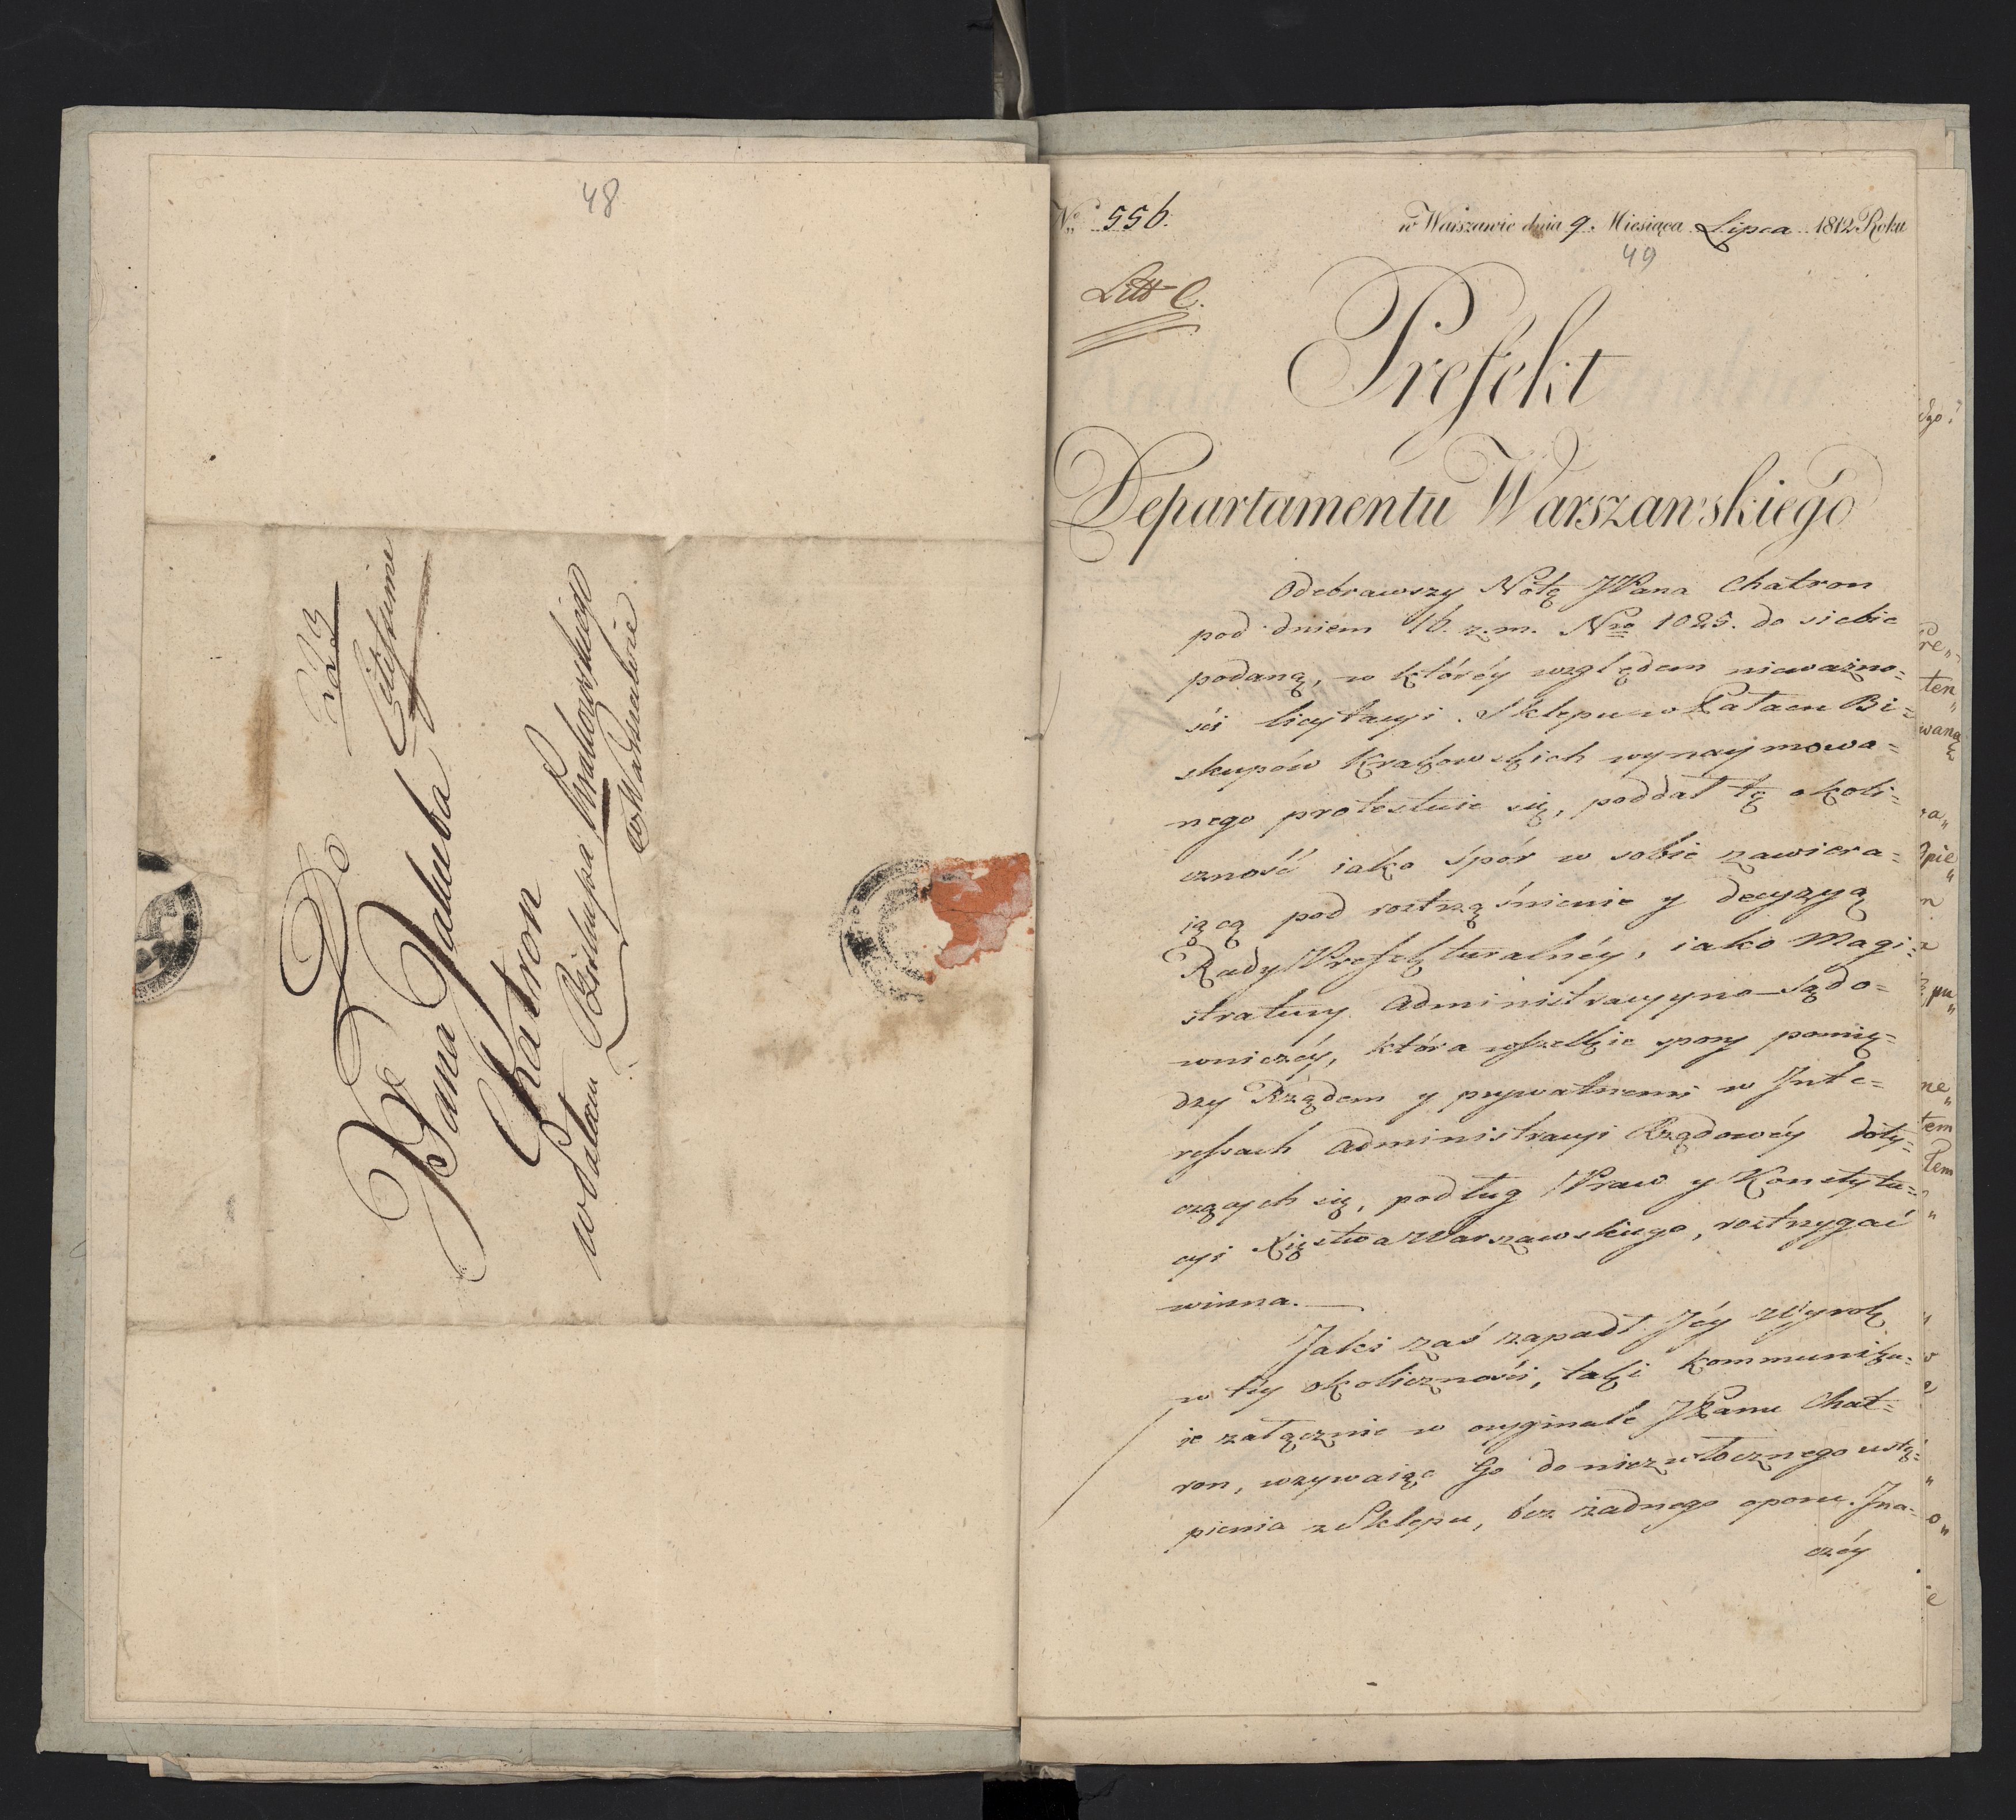 48
323
Do
JPana Jakuba
Chatron
w Pałacu Biskupa Krakowskiego
w Warszawie
No 556.
w Warszawie dnia 9. Miesiąca Lipca 1812 Roku
49
Litt C.
Prefekt
Departamentu Warszawskiego
Odebrawszy Notę JPana Chatron
pod dniem 16. z. m. Nro 1025. do siebie
podaną, w któréy względem nieważno=
ści licytacyi Sklepu w Pałacu Bi=
skupów Krakowskich wynaymowa=
nego protestuie się, poddał tę okoli=
czność iako spór w sobie zawiera=
iącą pod roztrząśnienie y decyzyą
Rady Prefekturalnéy, iako Magi=
stratury Administracyyno=sądo=
wniczéy, która wszelkie spory pomię=
dzy Rządem y prywatnemi w Inte=
ressach Administracyi Rządowéy doty=
czących się, podług Praw y Konstytu=
cyi Xięstwa Warszawskiego, roztrzygać
winna.
Jaki zaś zapadł Jéy Wyrok
w téy okoliczności, taki kommuniku=
ie załącznie w oryginale JPanu Chat=
ron, wzywaiąc Go do niezwłocznego ustą=
pienia z Sklepu, bez żadnego oporu. Ina=
czéy